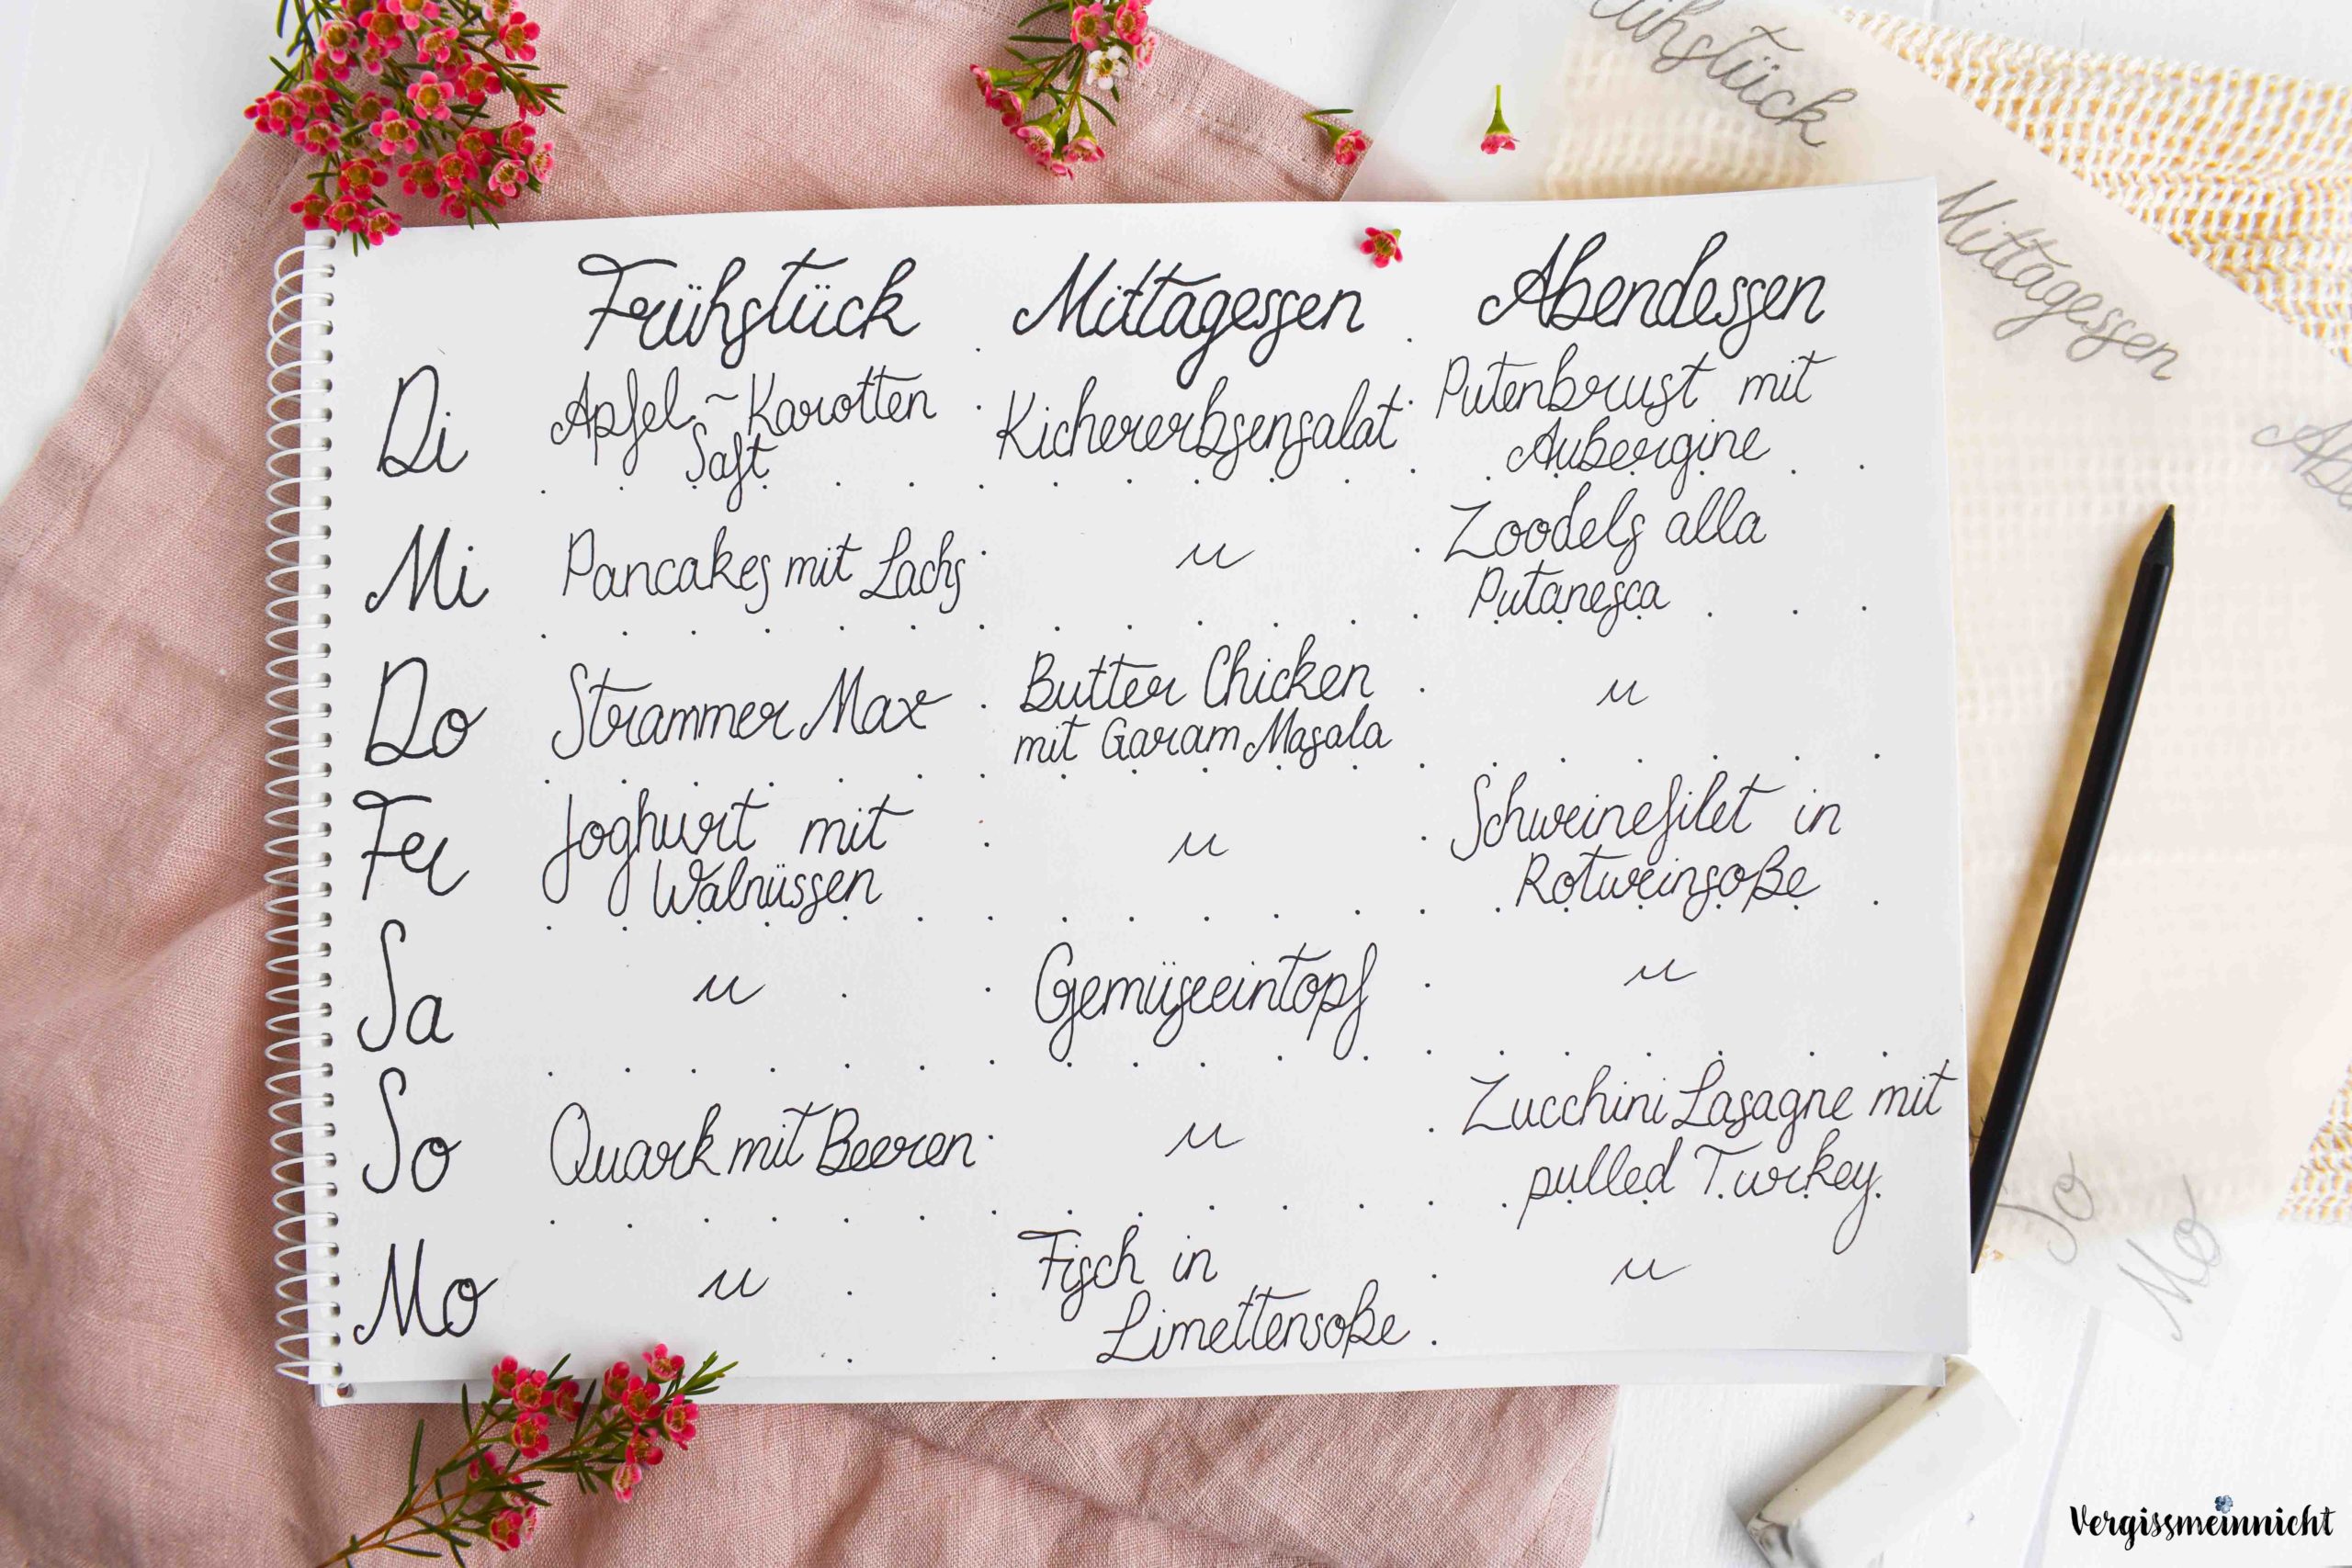 Frühstück Mittagessen Abendessen
Di Apfel~Karotten Kichererbsensalat Putenbrust mit
Saft Aubergine
Mi Pancakes mit Lachs " Zoodels alla
Putanesca
Do Strammer Max Butter Chicken "
mit Garam Masala
Fr Joghurt mit " Schweinefilet in
Walnüssen Rotweinsoße
Sa " Gemüseeintopf "
So Quark mit Beeren " Zucchini Lasagne mit
pulled Turkey
Mo " Fisch in "
Limettensoße
ühstück
Mittagessen
Abe
So
Mo
Vergissmeinnicht